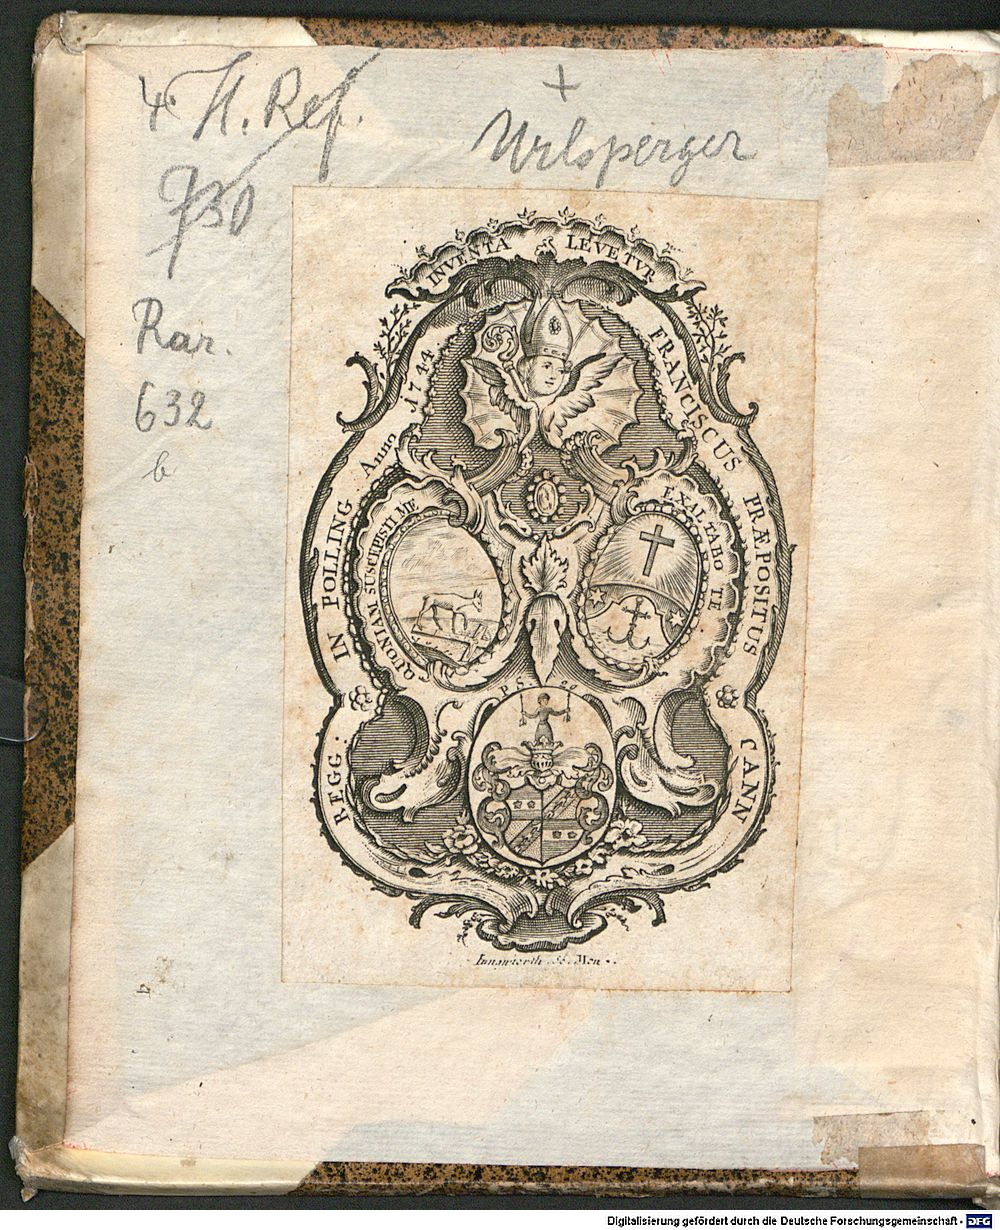 4° H. Ref.
730
+
Urlsperger
Rar.
632
b
INVENTA LEVETUR
FRANCISCUS PRÆPOSITUS CANN
REGG. IN POLLING Anno 1744
QUONIAM SUSCEPISTI ME
EXALTABO TE
P S
Jungwierth Sc. Mon.
Digitalisierung gefördert durch die Deutsche Forschungsgemeinschaft - DFG